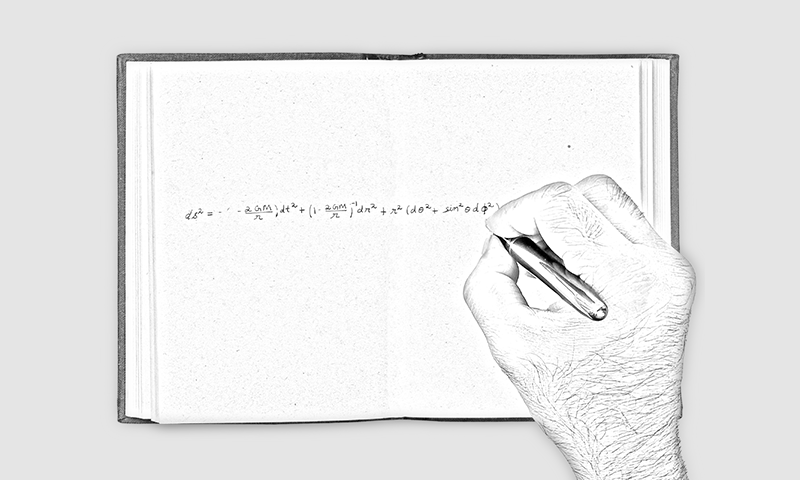 ds² = - - 2GM/r) dt² + (1 - 2GM/r)⁻¹ dr² + r² (dθ² + sin²θ dϕ²)